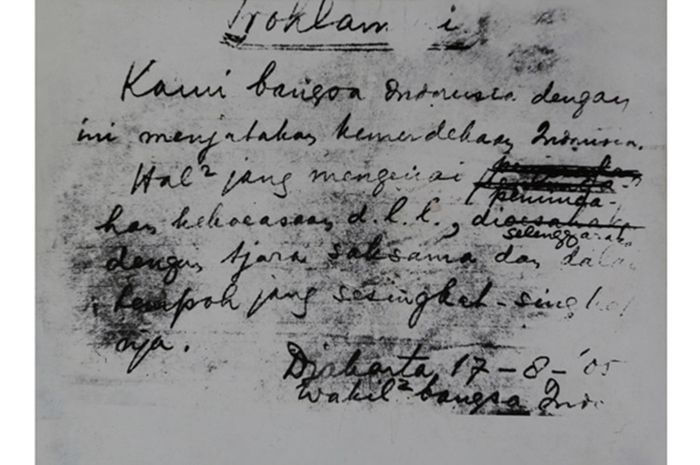 Proklam i
Kami bangsa Indonesia dengan
ini menjatakan kemerdekaan Indonesia.
Hal² jang mengenai
peminda-
han kekoeasaan d.l.l., dioesahakan
selenggarakan
dengan tjara saksama dan dalam
tempoh jang sesingkat-singkat
nja.
Djakarta, 17-8-'05
Wakil² bangsa Indo